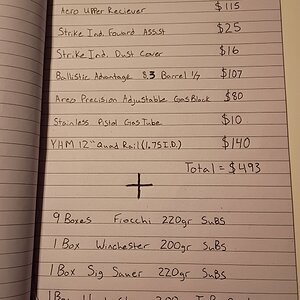 Aero Upper Reciever $115
Strike Ind. Foward Assist $25
Strike Ind. Dust Cover $16
Ballistic Advantage 8.3 Barrel 1/7 $107
Areo Precision Adjustable Gas Block $80
Stainless Pistol Gas Tube $10
YHM 12" Quad Rail (1.75 I.D.) $140
Total = $493
+
9 Boxes Fiocchi 220gr Subs
1 Box Winchester 200gr Subs
1 Box Sig Sauer 220gr Subs
1 Box